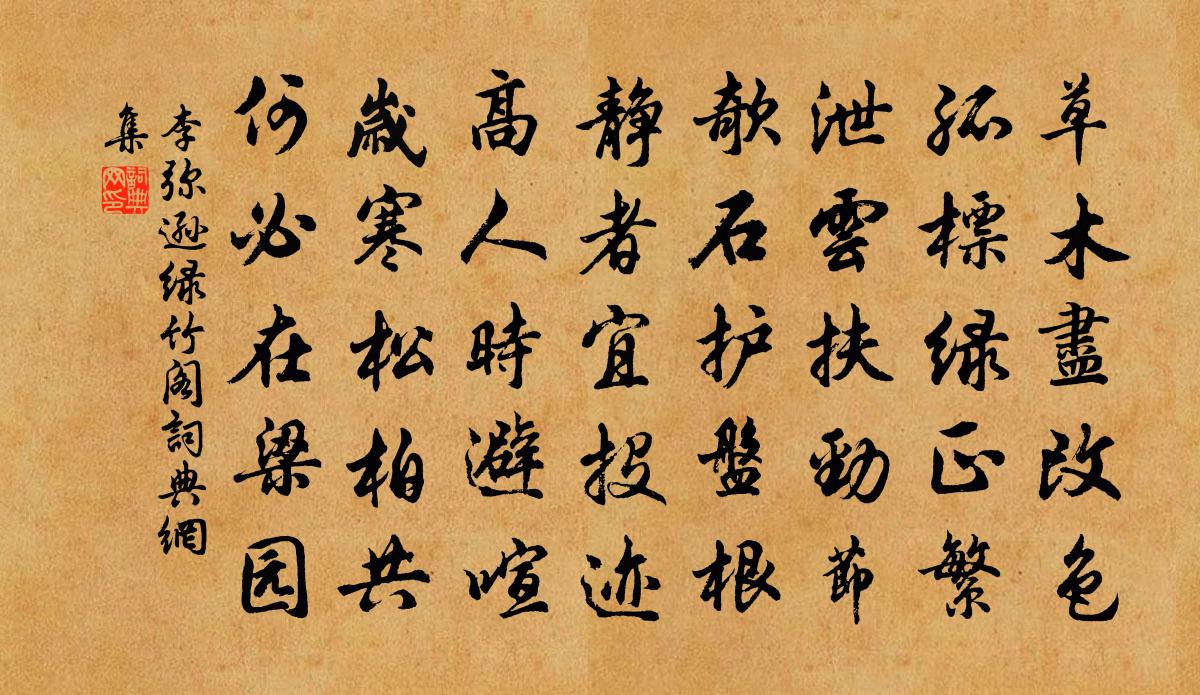 草木盡改色
孤標緑正繁
泄雲扶勁節
欹石护盤根
静者宜投迹
高人時避喧
歲寒松柏共
何必在梁园
李弥遜緑竹阁詞典網
集
詞典
网印